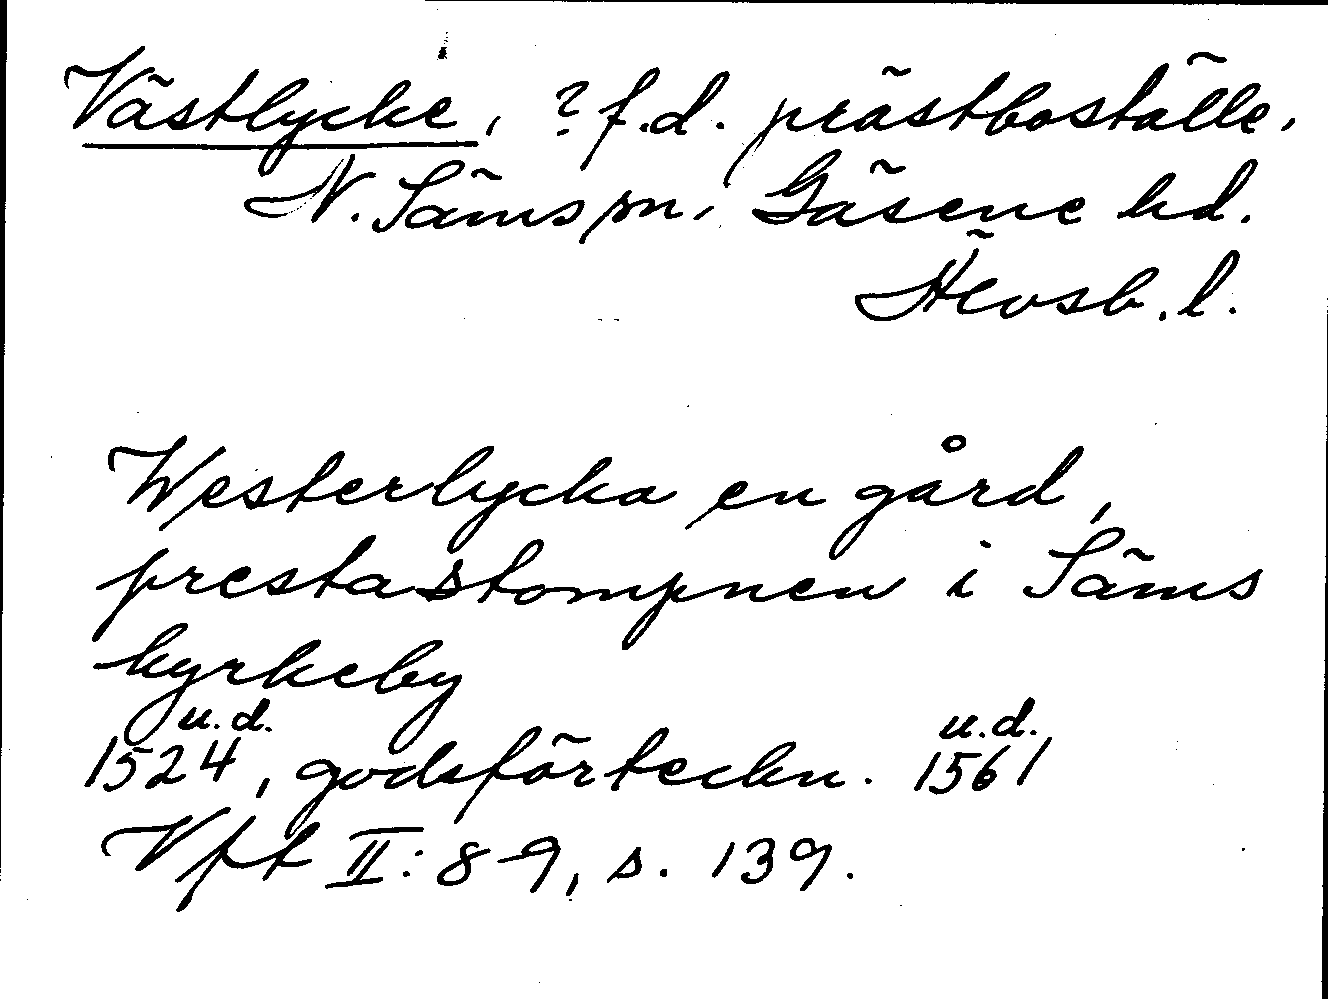 Västlycke, ? f.d. prästboställe,
N. Säms sn, Gäsene hd.
Älvsb. l.
Westerlycka en gård,
prestastompnen i Säms
kyrkeby
u.d. u.d.
1524, godsförteckn. 1561
Vft II: 8-9, s. 139.